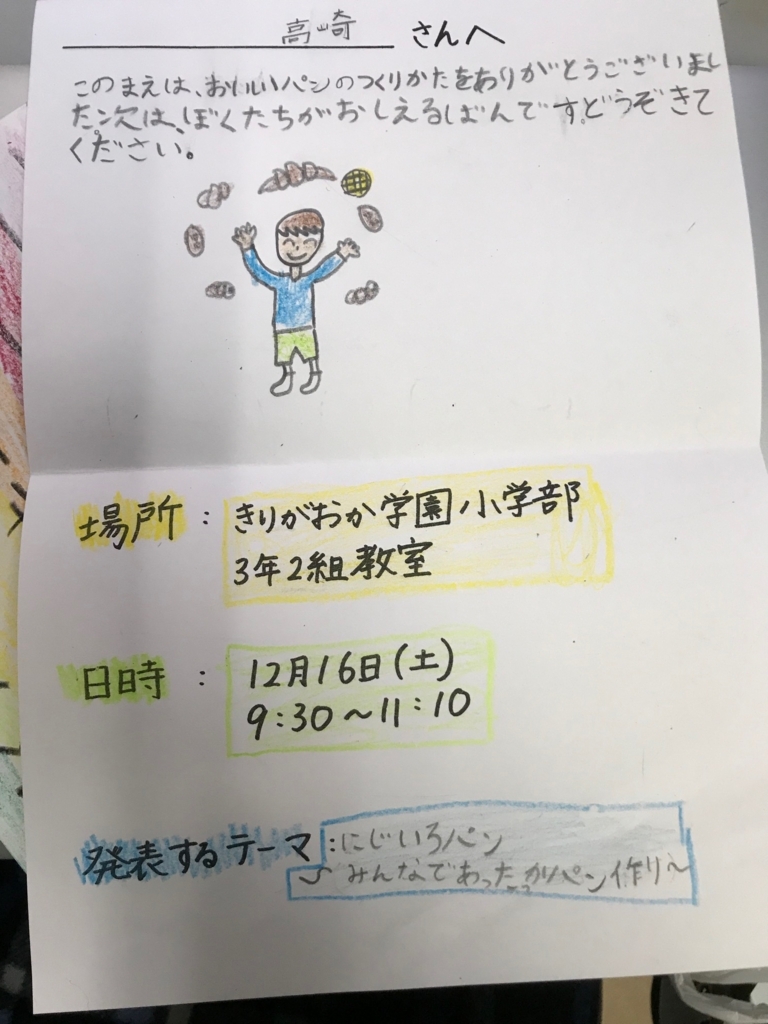 高崎 さんへ
このまえは、おいしいパンのつくりかたをありがとうございまし
た。次は、ぼくたちがおしえるばんです。どうぞきて
ください。
場所：きりがおか学園 小学部
3年2組教室
日時：12月16日(土)
9:30〜11:10
発表するテーマ：にじいろパン
〜みんなであったかパン作り〜